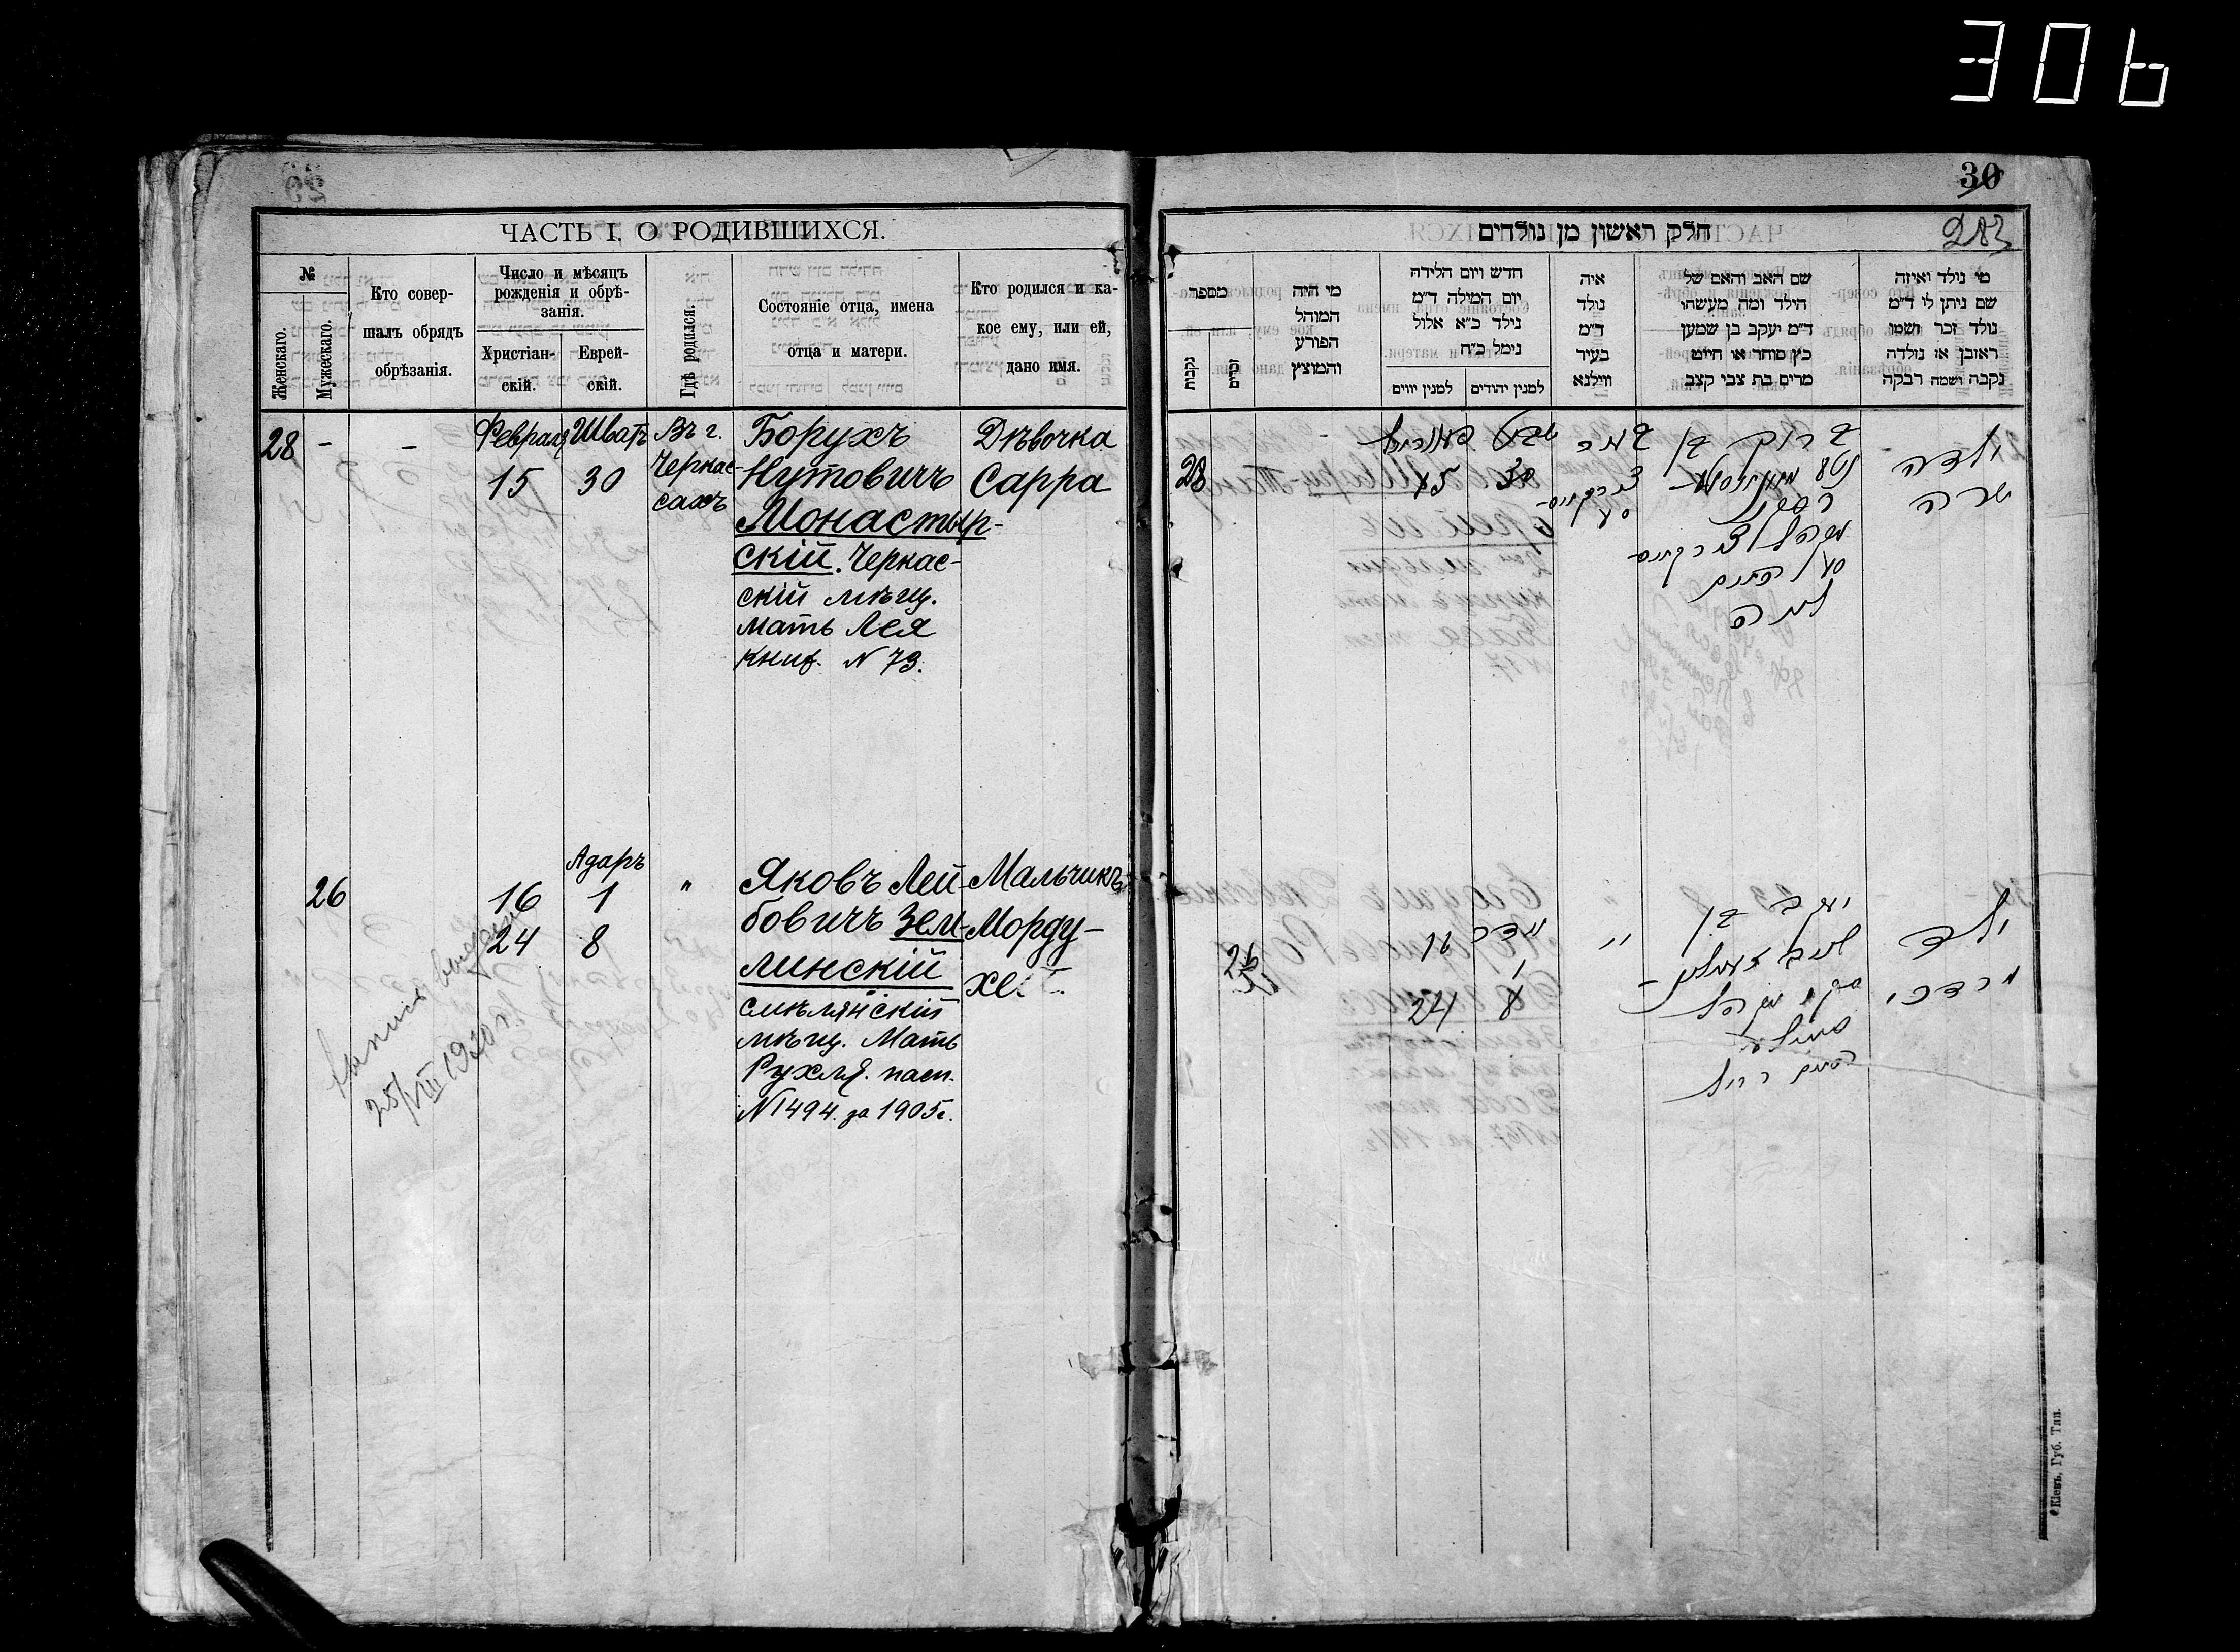 306
30
283
ЧАСТЬ I. О РОДИВШИХСЯ.
№
Женскаго.
Мужескаго.
Кто совер-
шалъ обрядъ
обрѣзанія.
Число и мѣсяцъ
рожденія и обрѣ-
занія.
Христіан-
скій.
Еврей-
скій.
Гдѣ родился.
Состояніе отца, имена
отца и матери.
Кто родился и ка-
кое ему, или ей,
дано имя.
28 - -
Февраля Шватъ
15 30
Въ г.
Черкас-
сахъ
Борухъ
Нутовичъ
Монастыр-
скій. Черкас-
скій мѣщ.
мать Лея
книж. N 73.
Дѣвочка
Сарра
26
Адаръ
16 1
24 8
"
Яковъ Лей-
бовичъ Зем-
линскій
смѣлянскій
мѣщ. Мать
Рухля. пасп.
N 1494. за 1905г.
Мальчикъ
Морду-
25/VIII 1920 г.
חלק ראשון מן נולדים
מספר
נקבות
זכרים
מי היה
המוהל
הפורע
והמוצץ
חדש ויום הלידה
יום המילה ד״מ
נילד כ״א אלול
נימל כ״ח
למנין יווים
למנין יהודים
איה
נולד
ד״מ
בעיר
ווילנא
שם האב והאם של
הילד ומה מעשהו
ד״מ יעקב בן שמען
כץ סוחר או חייט
מרים בת צבי קצב
מי נולד ואיזה
שם ניתן לו ד״מ
נולד זכר ושמו
ראובן או נולדה
נקבה ושמה רבקה
28
פעווראל
15
שבט
30
ברוך בן
ילדה
שרה
26
16
24
אדר
1
8
"
יעקב בן
ילד
מרדכי
Кіевъ. Губ. Тип.